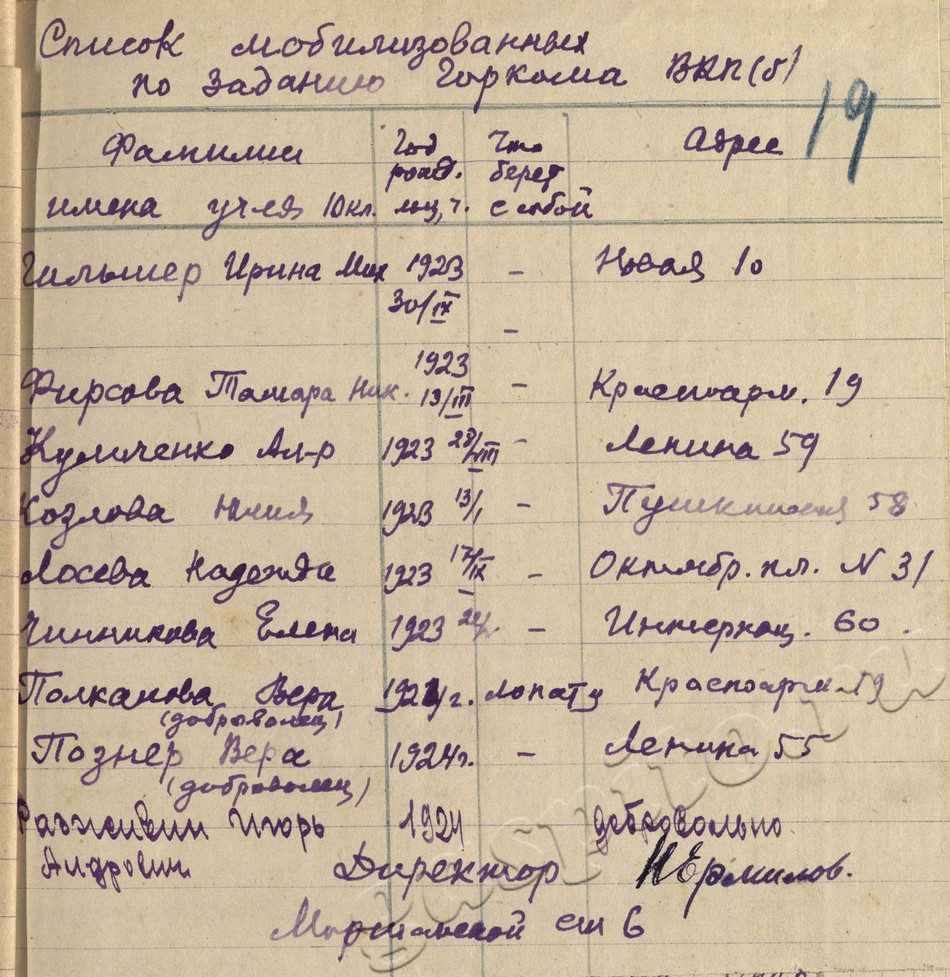 Список мобилизованных
по заданию Горкома ВКП(б)
19
Фамилии Год рожд. Что берет Адрес
имена уч-ся 10 кл. м-ц, ч. с собой
Гильшер Ирина Мих 1923 – Новая 10
30/IX –
1923
Фирсова Тамара Ник. 13/III – Красноарм. 19
Куличенко Ал-р 1923 28/VIII – Ленина 59
Козлова Юлия 1923 13/I – Пушкинская 58
Лосева Надежда 1923 17/IX – Октябр. пл. N 31
Чинникова Елена 1923 – Интернац. 60.
Полканова Вера 1924г. лопату Красноарм 19
(доброволец)
Познер Вера 1924г. – Ленина 55
(доброволец)
Разживин Игорь 1924 добровольно
Директор НЕрмилов.
Моршанской сш 6